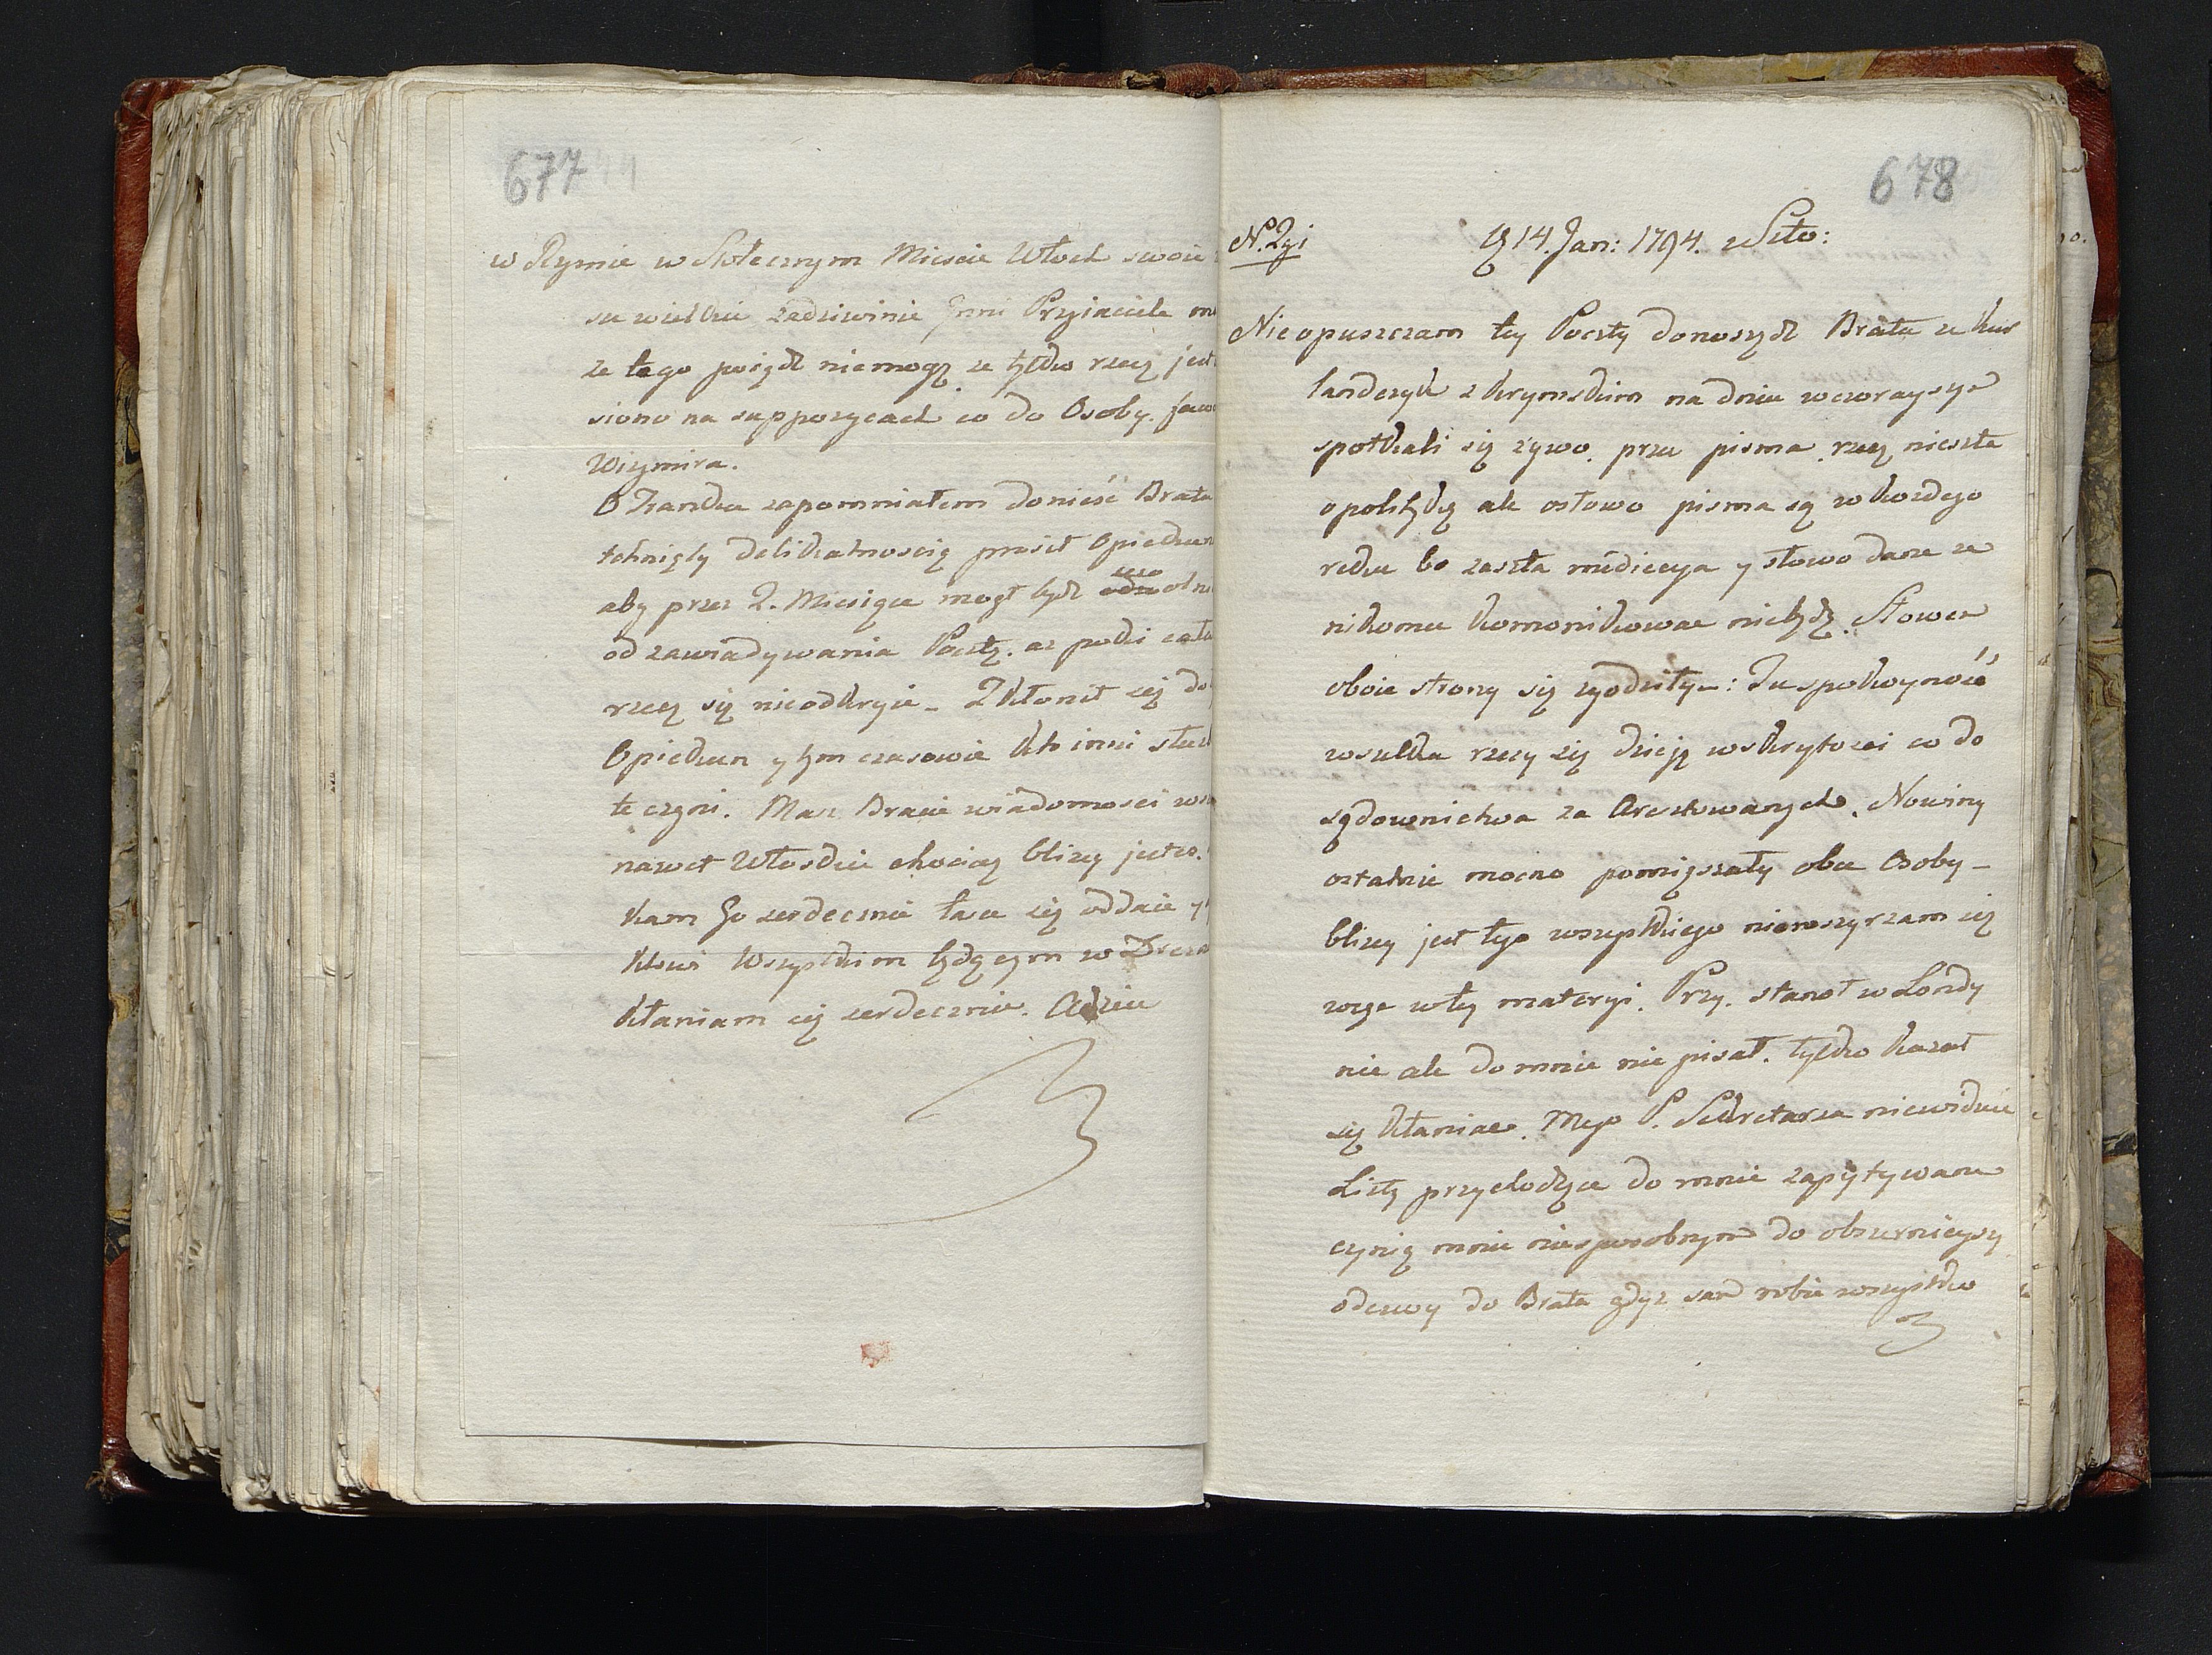 677
w Rymie w Stołecznym Mieście Włoch swoie
su wielkie zadziwinie Inni Przyiaciele
ze tego poiąć niemogą ze tylko rzecz jest
siono na suppozycach co do Osoby.
Wizmira.
O Franku zapomniałem donieść Bratu
tchnięty delikatnoscią prosił Opiekun
aby przez 2. Miesiące mogł być uwolni
od zawiadywania Pocztą. az poki cała
rzecz się nieodkryie _ Skłonił się do
Opiekun y tym czasowie Kto inni
te czyni. Masz Bracie wiadomosci
nawet Włoskie chociaz blizey jestes.
kam Go serdecznie łasce się oddaie y
Wszystkim będącym w
Kłaniam się serdecznie. Adieu
678
N. 2gi
14. Jan: 1794. z Szto:
Nieopuszczam tey Poczty donosząc Bratu ze Kur
landczyk z Krymskim na dniu wczorayszym
spotkali się zywo. przez pisma. rzecz nieszła
opolitykę ale osłowo pisma są w kozdego
reku bo zaszła médiccya y słowo dane ze
nikomu komonikowae niebędą. Słowem
oboie strony się zgodziły: Tu spokoyność
wszelka rzecy się dzieją wskrytosci co do
sądownictwa za Aresztowanych. Nowiny
ostatnie mocno pomięszały obce Osoby _
blizey jest tego wszystkiego nierozszyrzam się
więc wtey materyi. Przy. stanoł w Londy
nie ale do mnie nie pisał. tylko kazał
się kłaniae. Mego P. Sekretarza niewidzie
Listy przychodzące do mnie zapytywane
czynią mnie niesposobnym do obszernieyszey
odezwy do Brata gdyz sam robie wszystko